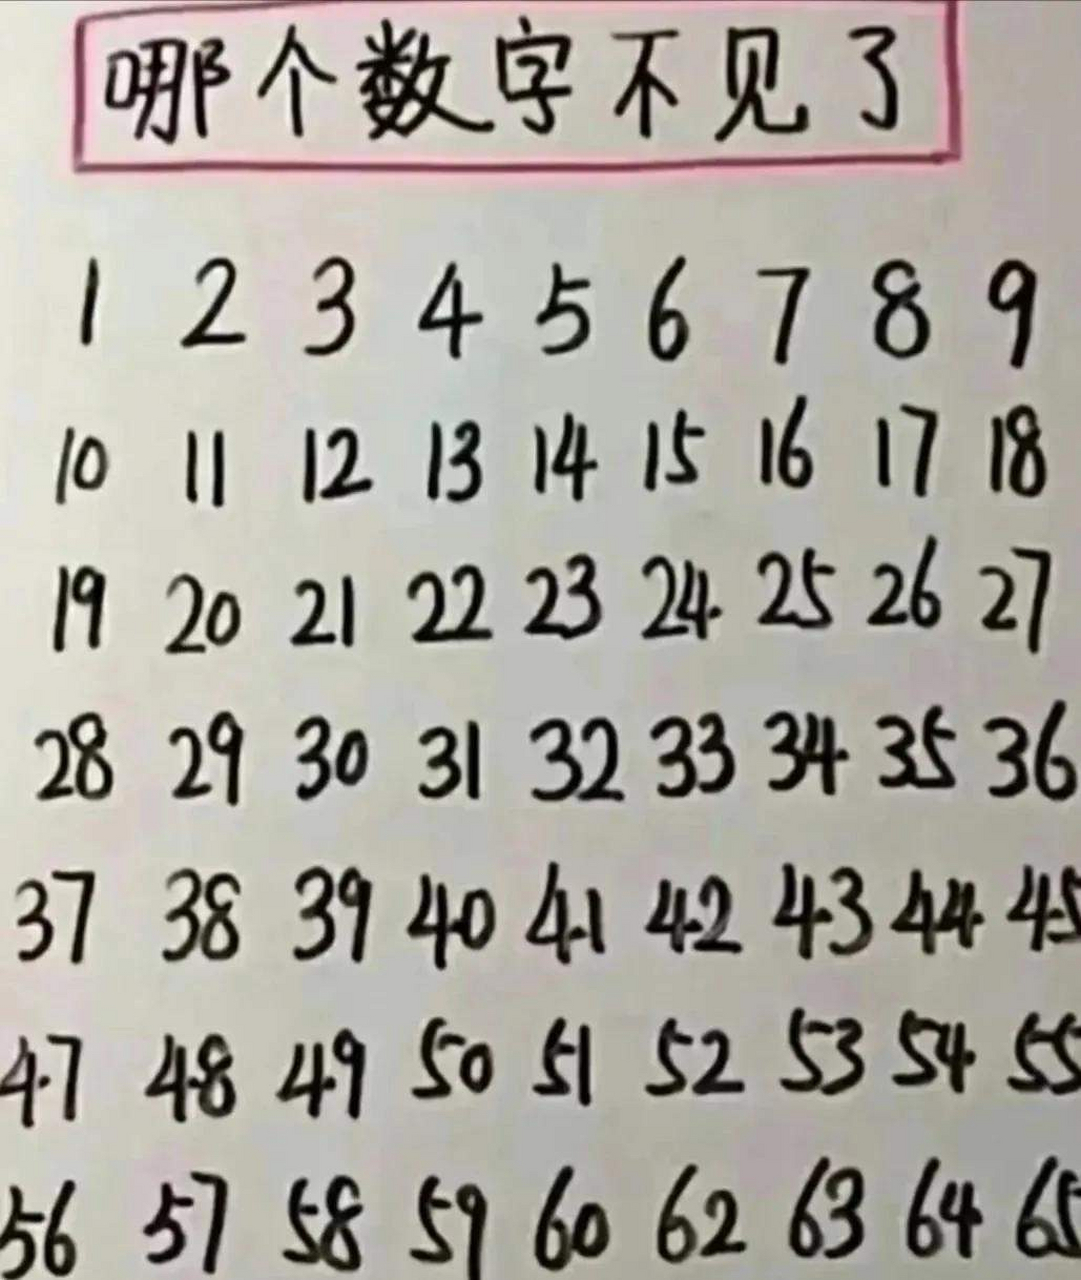 哪个数字不见了
1 2 3 4 5 6 7 8 9
10 11 12 13 14 15 16 17 18
19 20 21 22 23 24 25 26 27
28 29 30 31 32 33 34 35 36
37 38 39 40 41 42 43 44 45
47 48 49 50 51 52 53 54 55
56 57 58 59 60 62 63 64 65